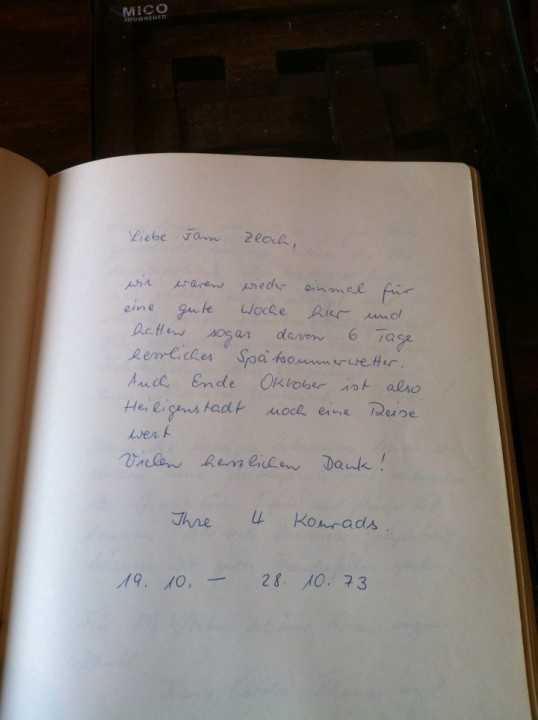 MICO
TOUGHENED
Liebe Fam. Zloch,
wir waren wieder einmal für
eine gute Woche hier und
hatten sogar davon 6 Tage
herrliches Spätsommerwetter.
Auch Ende Oktober ist also
Heiligenstadt noch eine Reise
wert.
Vielen herzlichen Dank!
Ihre 4 Konrads.
19. 10. — 28. 10. 73